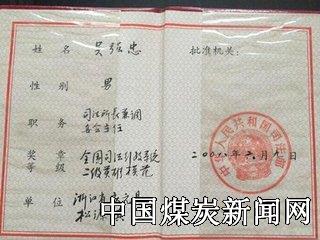 姓名 吴强忠
性别 男
职务 司法所长兼调
委会主任
奖章
等级 全国司法行政系统
二级英雄模范
单位 浙江省
松源
批准机关：
中华人民共和国司法部
二00 年六月 日
中国煤炭新闻网